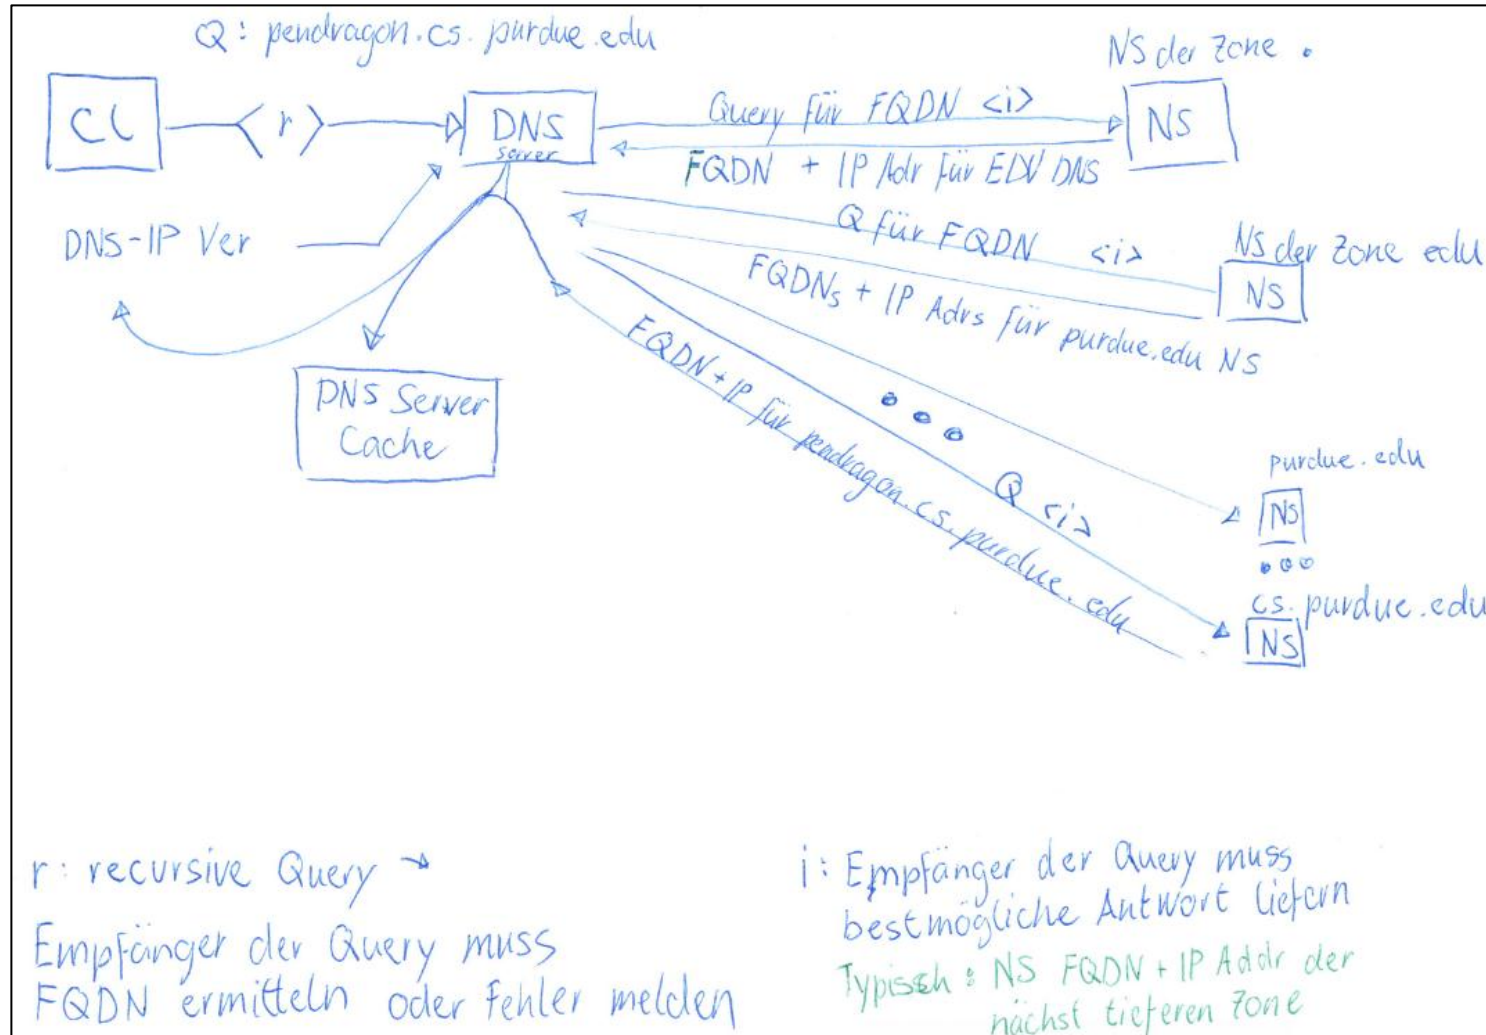 Q: pendragon.cs.purdue.edu
NS der Zone .
CL
<r>
DNS
server
Query für FQDN <i>
NS
FQDN + IP Adr für EDV DNS
DNS-IP Ver
Q für FQDN <i>
NS der Zone edu
NS
FQDNs + IP Adrs für purdue.edu NS
FQDN + IP für pendragon.cs.purdue.edu
DNS Server
Cache
Q <i>
purdue.edu
NS
cs.purdue.edu
NS
r: recursive Query →
Empfänger der Query muss
FQDN ermitteln oder Fehler melden
i: Empfänger der Query muss
bestmögliche Antwort liefern
Typisch: NS FQDN + IP Addr der
nächst tieferen Zone